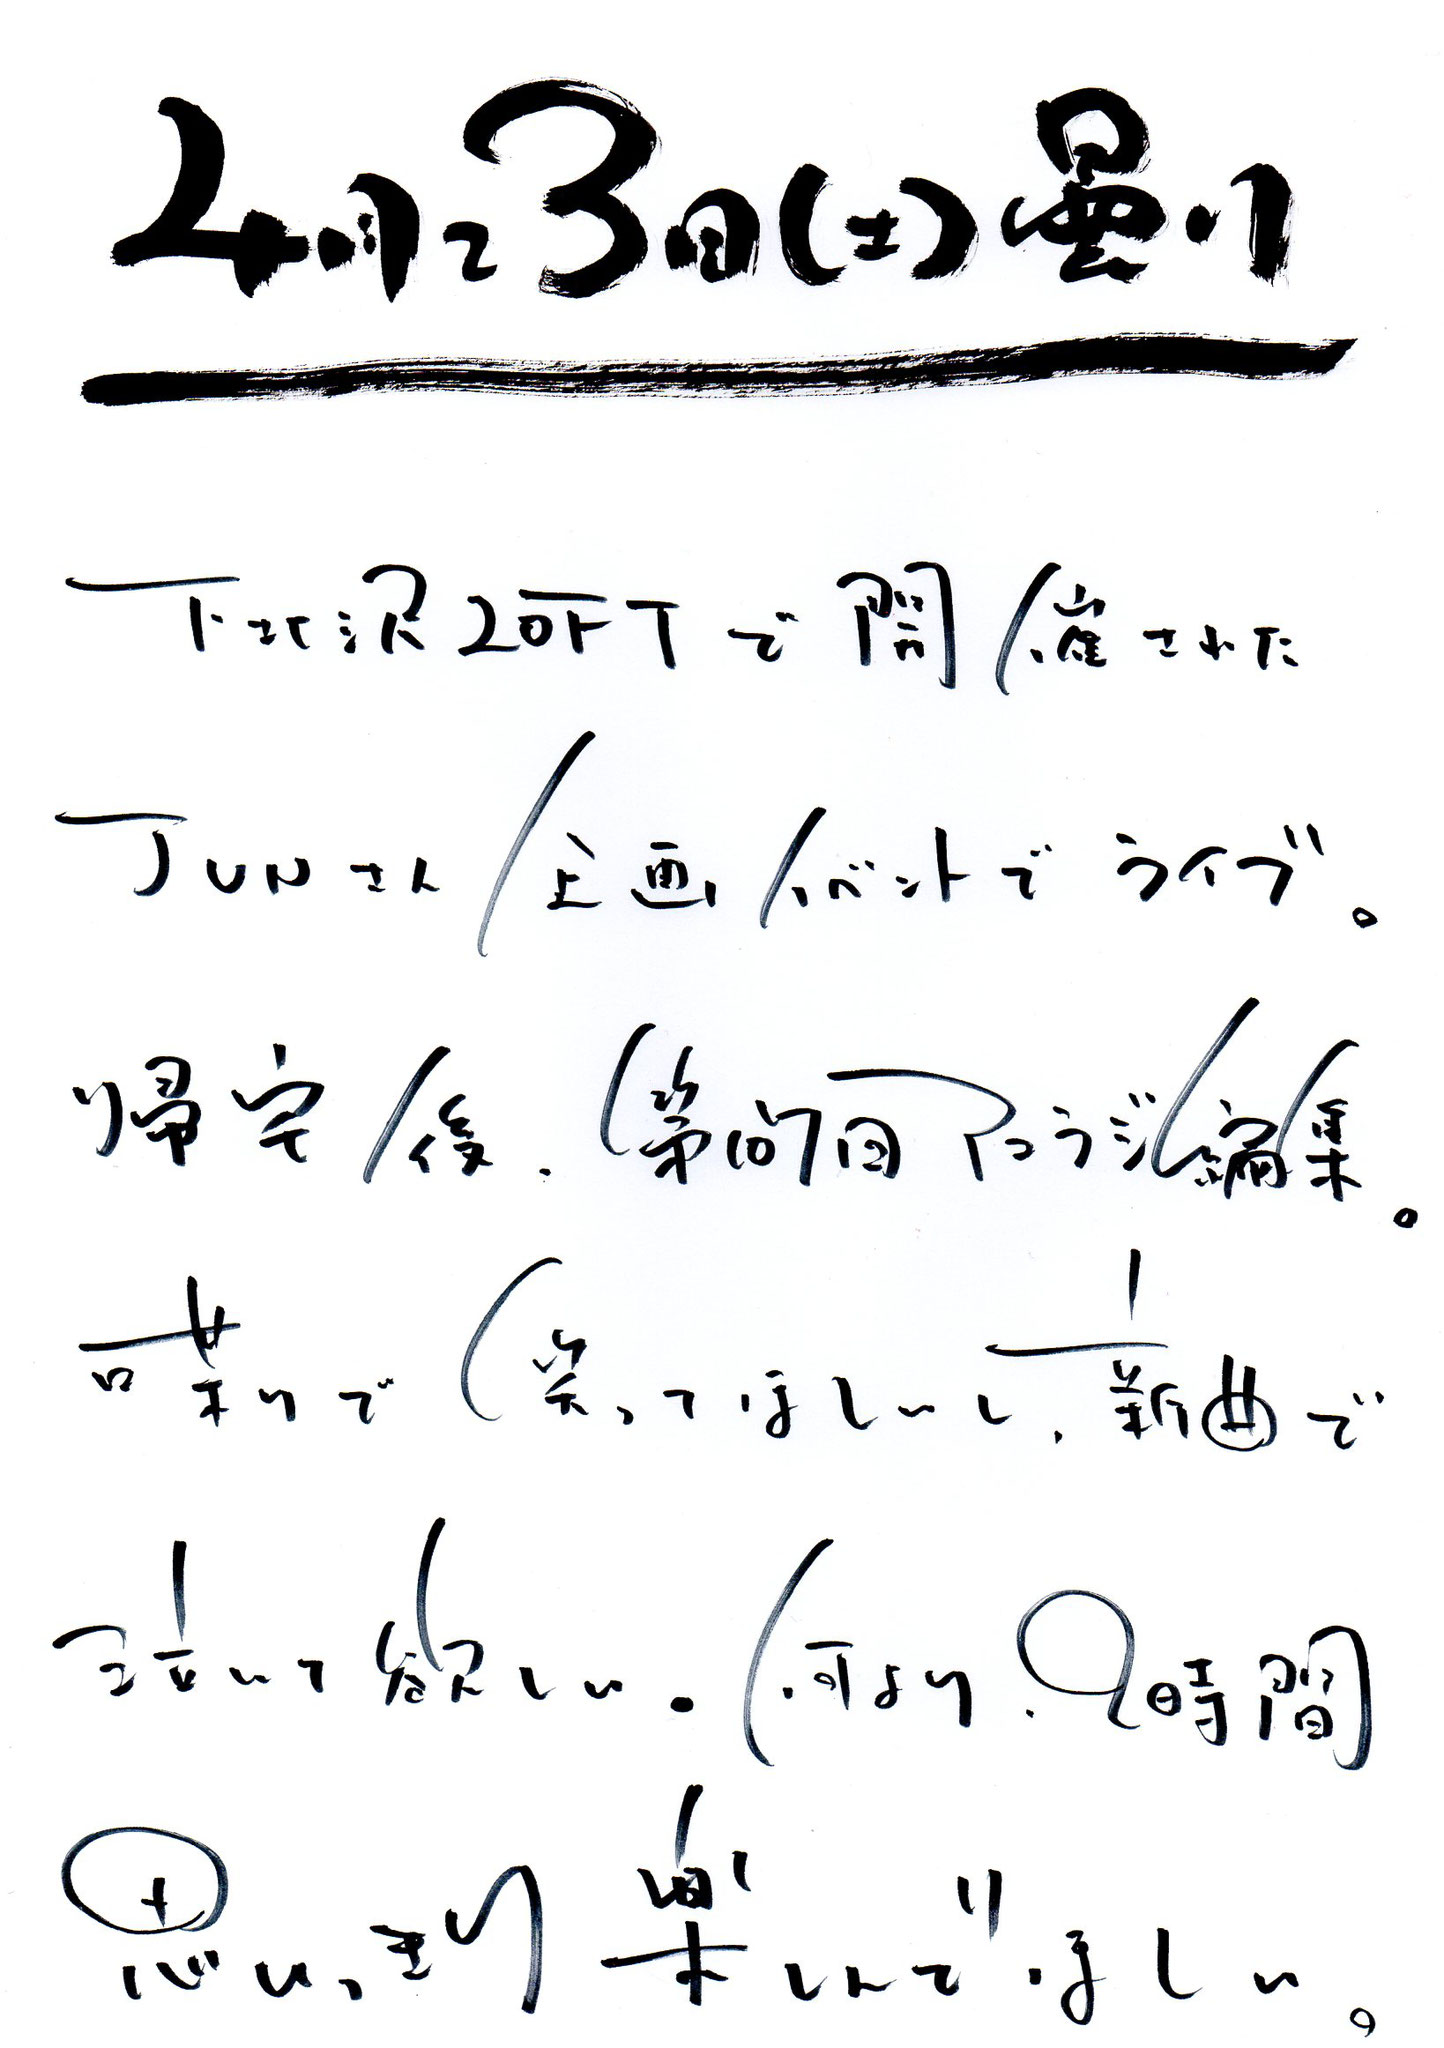 4月23日(土)曇り
下北沢LOFTで開催された
JUNさん企画イベントでライブ。
帰宅後、第107回アコラジ編集。
喋りで笑ってほしいし、新曲で
泣いて欲しい。何より、2時間
思いっきり楽しんでほしい。